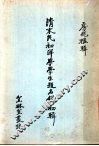 房兆楹輯
清末民初洋學學生題名錄初輯